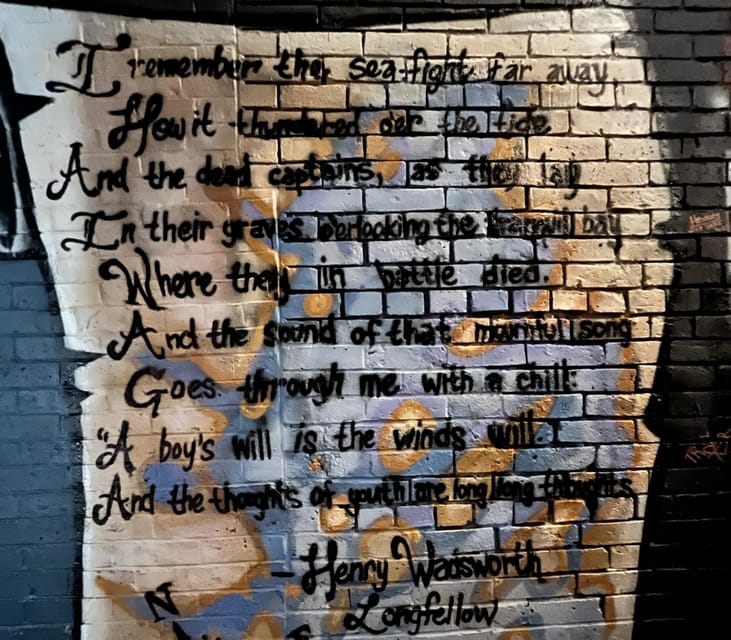 I remember the sea-fight far away,
How it thundered o'er the tide
And the dead captains, as they lay
In their graves, o'erlooking the tranquil bay
Where they in battle died.
And the sound of that mournful song
Goes through me with a chill:
"A boy's will is the winds will.
And the thoughts of youth are long, long thoughts
- Henry Wadsworth
Longfellow
N
E